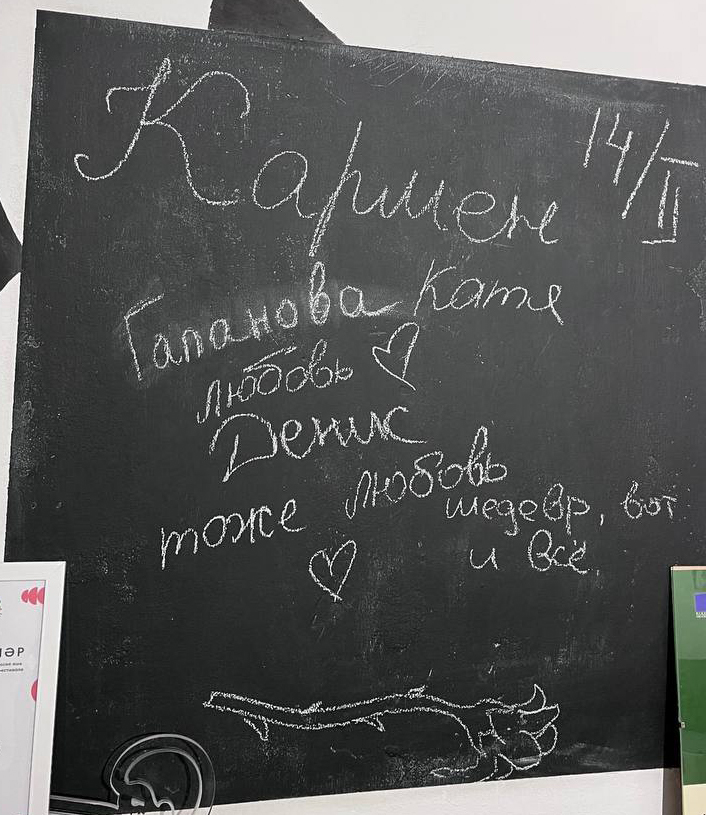 Кармен
14/II
Гапанова Катя
любовь
Денис
тоже любовь
шедевр, вот
и всё
ЛӘР